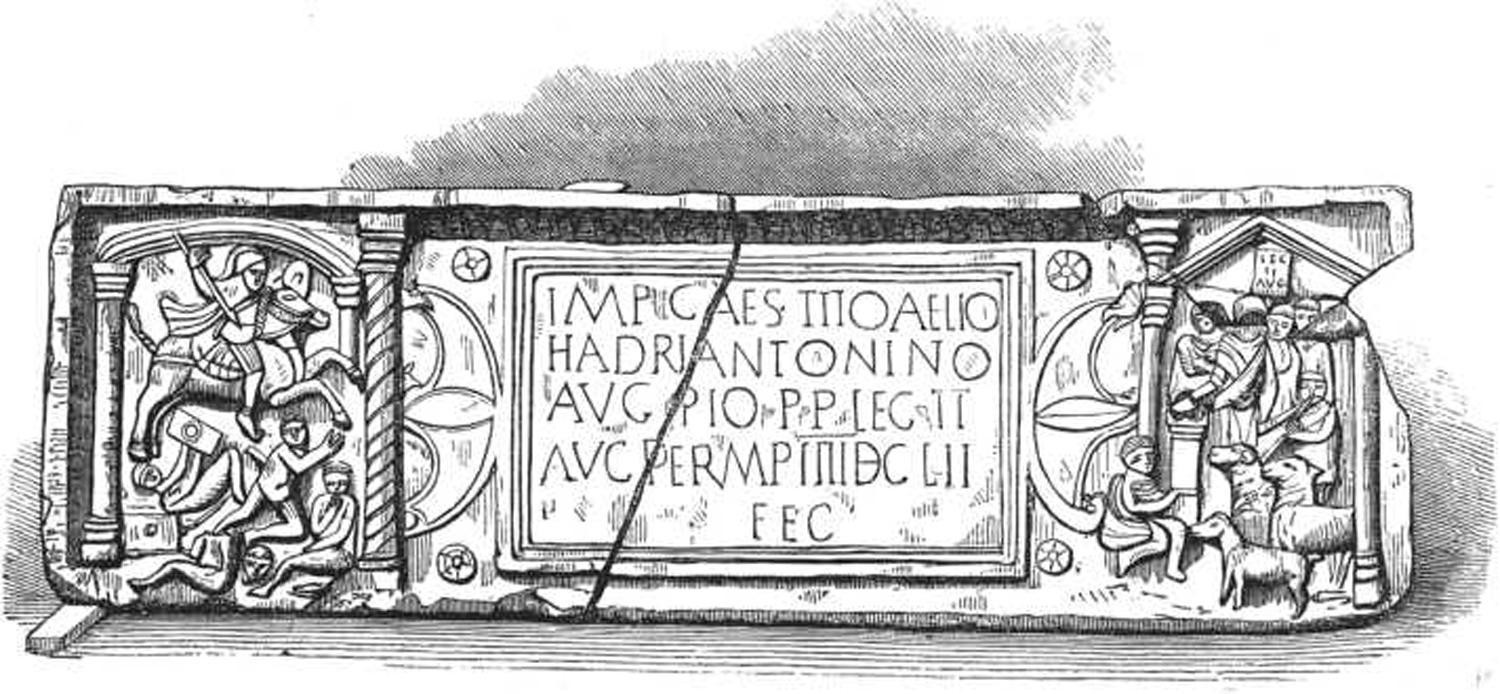 IMP CAES TITO AELIO
HADRI ANTONINO
AVG PIO P·P· LEG·II
AVG PER M P IIII DC LII
FEC
LEG
II
AVG